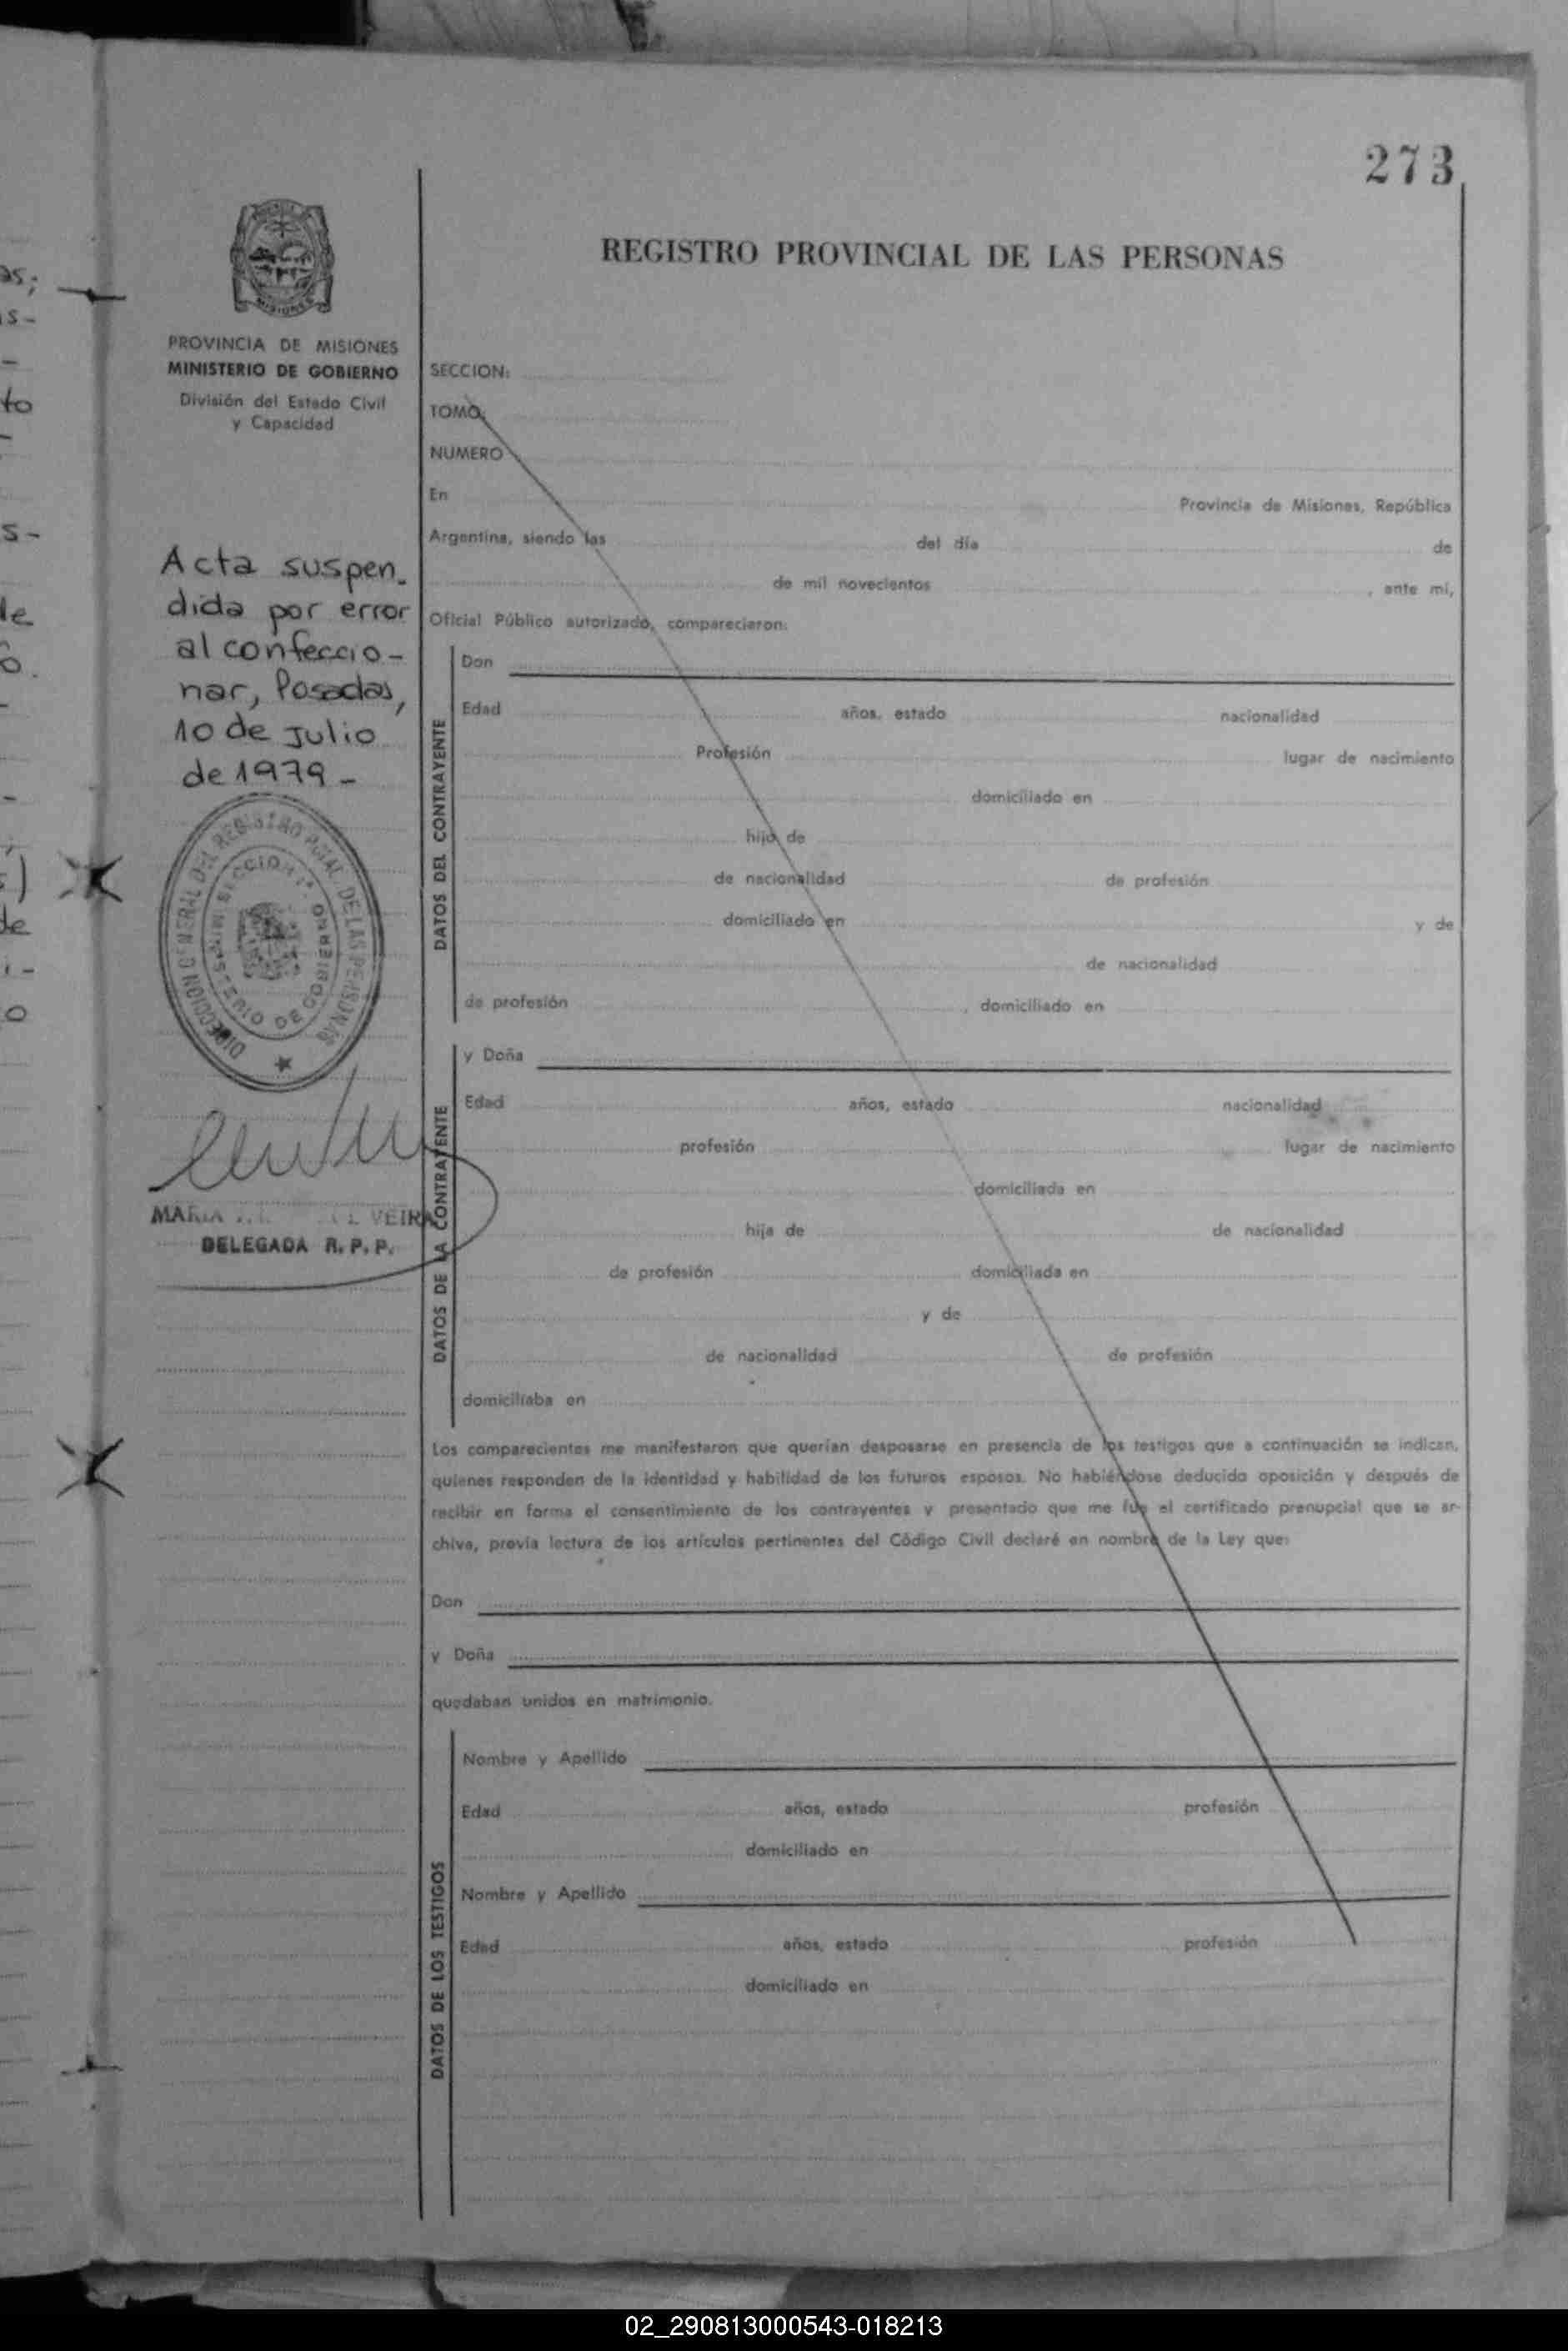 273
MISIONES
REGISTRO PROVINCIAL DE LAS PERSONAS
PROVINCIA DE MISIONES
MINISTERIO DE GOBIERNO
División del Estado Civil
y Capacidad
as;
s-
-
to
s-
de
o.
de
i-
o
Acta suspen-
dida por error
al confeccio-
nar, Posadas,
10 de Julio
de 1979-
DIRECCION GENERAL DEL REGISTRO PCIAL DE LAS PERSONAS
SECCION 1a. MINISTERIO DE GOBIERNO
MARIA VEIRA
DELEGADA R.P.P.
SECCION:
TOMO:
NUMERO
En Provincia de Misiones, República
Argentina, siendo las del día de
de mil novecientos , ante mí,
Oficial Público autorizado, comparecieron:
DATOS DEL CONTRAYENTE
Don
Edad años, estado nacionalidad
Profesión lugar de nacimiento
domiciliado en
hijo de
de nacionalidad de profesión
domiciliado en y de
de nacionalidad
de profesión , domiciliado en
DATOS DE LA CONTRAYENTE
y Doña
Edad años, estado nacionalidad
profesión lugar de nacimiento
domiciliada en
hija de de nacionalidad
de profesión domiciliada en
y de
de nacionalidad de profesión
domiciliaba en
Los comparecientes me manifestaron que querían desposarse en presencia de los testigos que a continuación se indican,
quienes responden de la identidad y habilidad de los futuros esposos. No habiéndose deducido oposición y después de
recibir en forma el consentimiento de los contrayentes y presentado que me fue el certificado prenupcial que se ar-
chiva, previa lectura de los artículos pertinentes del Código Civil declaré en nombre de la Ley que:
Don
y Doña
quedaban unidos en matrimonio.
DATOS DE LOS TESTIGOS
Nombre y Apellido
Edad años, estado profesión
domiciliado en
Nombre y Apellido
Edad años, estado profesión
domiciliado en
02_290813000543-018213